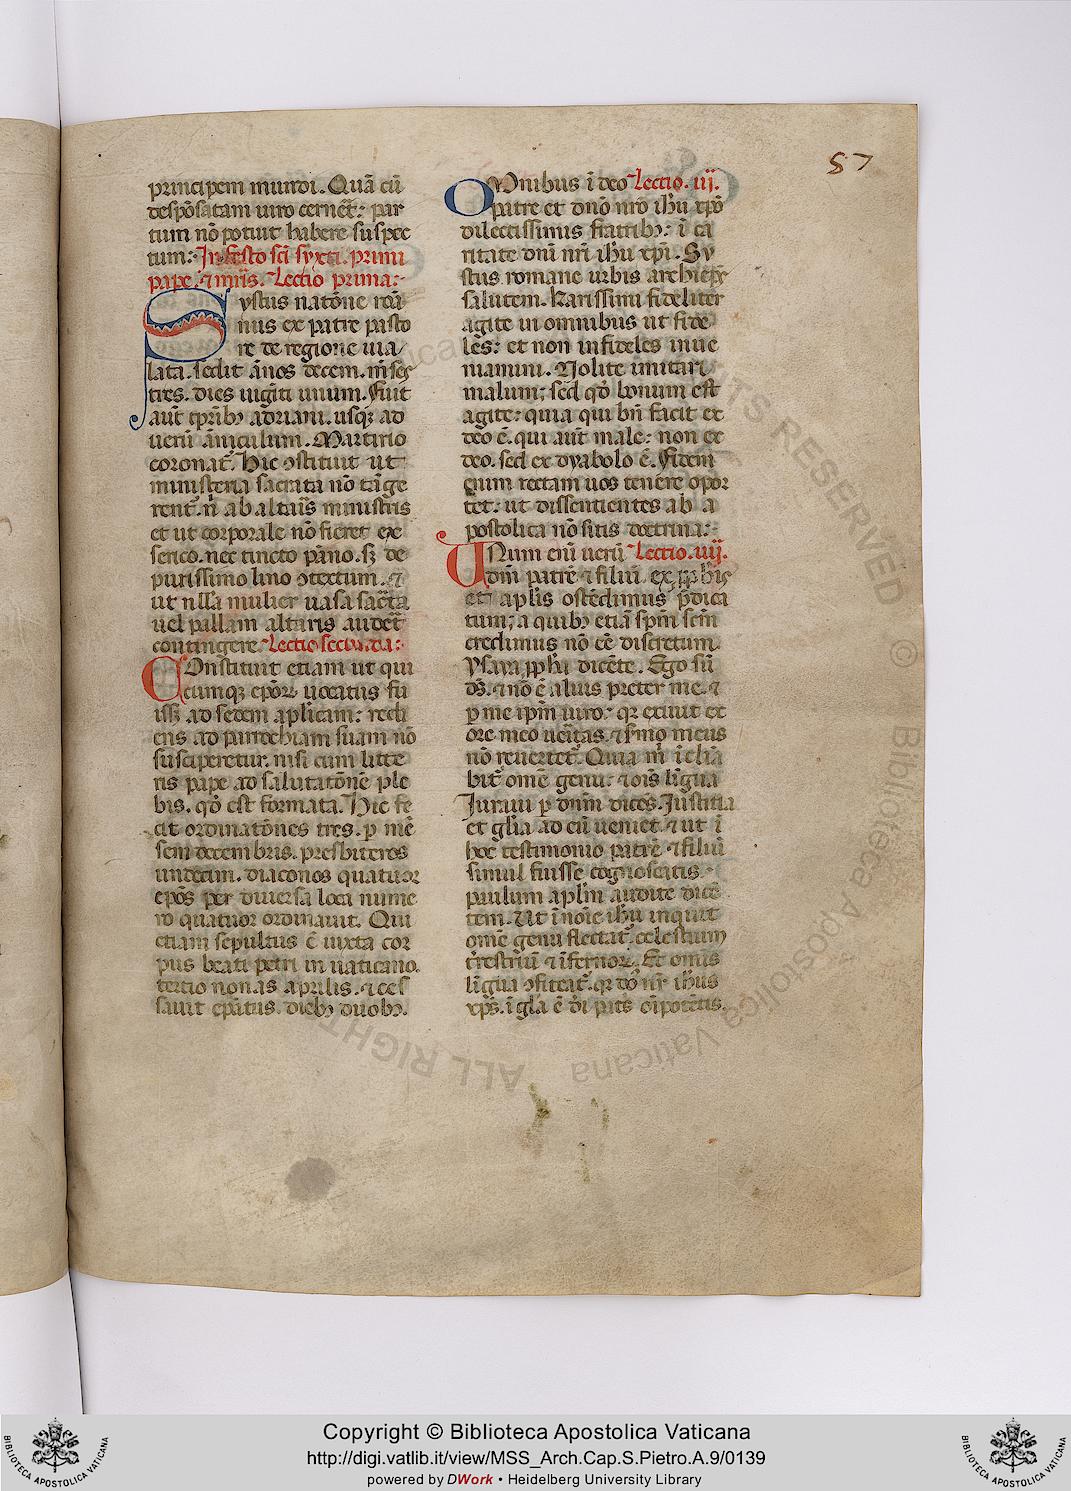 57
principem mundi. Quā cū
despōsatam uiro cerneret: par
tum nō potuit habere suspec
tum: In festo sc̄i syxti primi
pape. ⁊ mr̄is. Lectio prima:
Systus natōne roā
nus ex patre pasto
re de regione uia
lata. sedit ānos decem. m̄ses
tres. dies uiginti unum. Fuit
aut̄ tp̄ribꝫ adriani. usqꝫ ad
uerū āniculum. Martirio
coronat̄. Hic ↄstituit ut
ministeria sacrata nō tāge
rent̄. n̄ ab altaris ministris
et ut corporale nō fieret ex
serico. nec tincto pāno. sꝫ de
purissimo lino ↄtextum. ⁊
ut nulla mulier uasa sacr̄ta
uel pallam altaris audet̄
contingere. Lectio secunda:
Constituit etiam ut qui
cumqꝫ ep̄oꝝ uocatus fu
issꝫ ad sedem aplicam: redi
ens ad parrochiam suam nō
susciperetur. nisi cum litte
ris pape ad salutatōnē ple
bis. qd̄ est formata. Hic fe
cit ordinatōnes tres. p mē
sem decembris. presbiteros
undecim. diaconos quatuor
ep̄os per diuersa loca nume
ro quatuor ordinauit. Qui
etiam sepultus ē iuxta cor
pus beati petri in uaticano.
tertio nonas aprilis. ⁊ ces
sauit ep̄atus. diebꝫ duobꝫ.
Omnibus ī deo Lectio. iij.
patre et dn̄o nr̄o ih̄u xp̄o
dilectissimis fratribꝫ: ī ca
ritate dn̄i nr̄i ih̄u xp̄i. Sy
stus romane urbis archiep̄s
salutem. Karissimi fideliter
agite ut omnibus ut fide
les: et non infideles inue
niamini. Nolite imitari
malum; sed qd̄ bonum est
agite: quia qui bn̄ facit ex
deo ē. qui aut̄ male: non ex
deo. sed ex dyabolo ē. Fidem
enim rectam uos tenere opor
tet: ut dissentientes ab a
postolica nō sitis doctrina:
Unum eni uerū Lectio. iiij.
dm̄ patrē ⁊ filiū ex pph̄is
et aplis ostēdimus p̄dica
tum; a quibꝫ etiā sp̄m sc̄m
credimus nō ēē discretum.
Ysaya pph̄a dicēte. Ego sū
ds̄. ⁊ nō ē alius preter me. ⁊
p me ip̄m iuro. qꝛ exiuit ex
ore meo ueritas. ⁊ sermo meus
nō reuertet̄. Quia m̄ īclīa
bit̄ omē genu. ⁊ ois līgua
Iuraui p dn̄m dices. Iustitia
et glīa ad eū ueniet. ⁊ ut ī
hoc testimonio patrē ⁊ filiū
simul fuisse cognoscatis.
paulum aplm audite dicē
tem. Ut ī noīe ih̄u inquit
omē genu flectat̄. celestium
t̄restriū ⁊ īfernoꝝ. Et omis
līgua ↄfiteat̄. qꝛ dn̄s nr̄ ih̄us
xp̄s. ī glīa ē dī patris oīpotētis.
ALL RIGHTS RESERVED © Biblioteca Apostolica Vaticana
BIBLIOTECA APOSTOLICA VATICANA
Copyright © Biblioteca Apostolica Vaticana
http://digi.vatlib.it/view/MSS_Arch.Cap.S.Pietro.A.9/0139
powered by DWork • Heidelberg University Library
BIBLIOTECA APOSTOLICA VATICANA